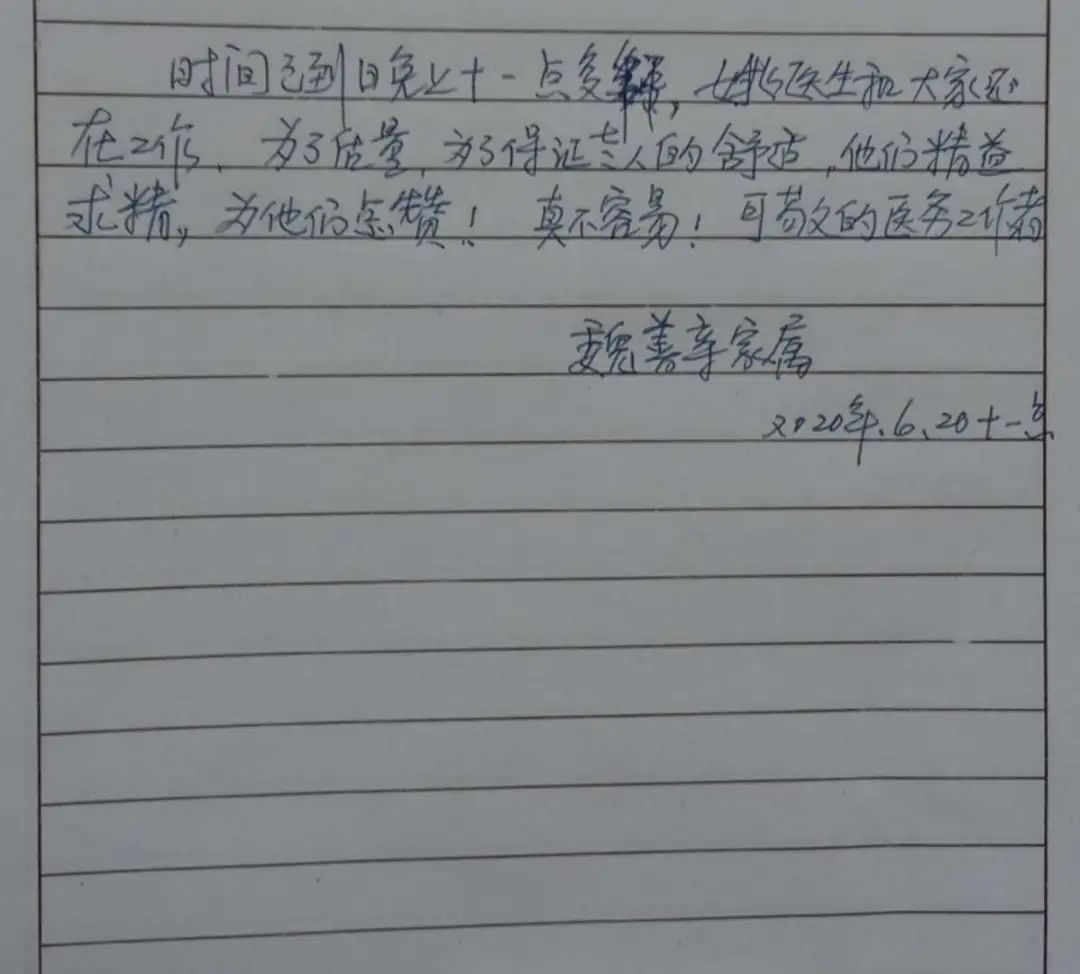 时间已到晚上十一点多，姚医生和大家还
在工作，为了质量，为了保证老人的舒适，他们精益
求精，为他们点赞！真不容易！可敬的医务工作者
魏善亭家属
2020年.6.20十一点